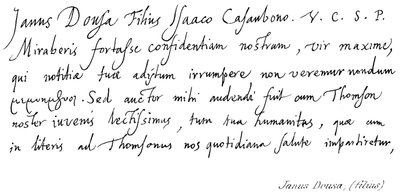 Janus Dousa Filius Isaaco Casaubono. V. C. S. P.
Miraberis fortasse confidentiam nostram, vir maxime,
qui notitiæ tuæ adytum irrumpere non veremur nondum
μεμυημένοι. Sed auctor mihi audendi fuit cum Thomson
noster iuvenis lectissimus, tum tua humanitas, quæ cum
in literis ad Thomsonum nos quotidiana salute impartiretur,
Janus Dousa, (filius)